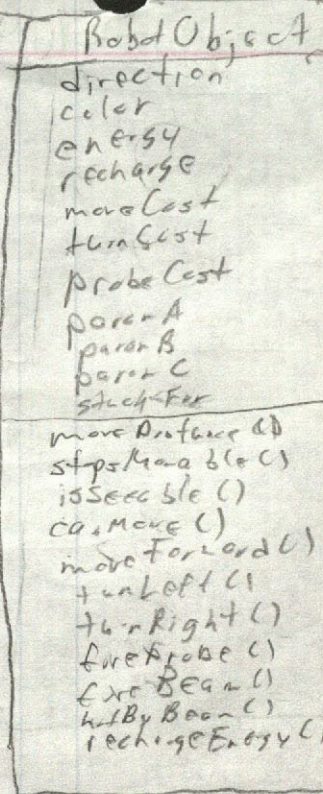 RobotObject
direction
color
energy
recharge
moveCost
turnCost
probeCost
paramA
paramB
paramC
stuckFor
moveDistance()
stepsMovable()
isSeeable()
canMove()
moveForward()
turnLeft()
turnRight()
fireProbe()
fireBeam()
hitByBeam()
rechargeEnergy()